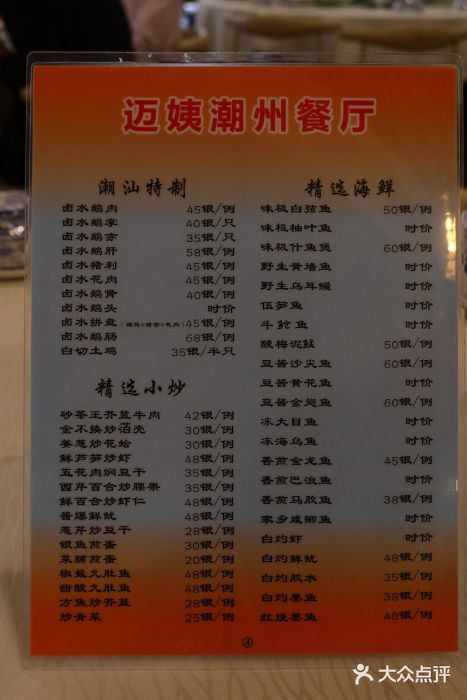 迈姨潮州餐厅
潮汕特制
卤水鹅肉 45银/例
卤水鹅掌 40银/只
卤水鹅亦 35银/只
卤水鹅肝 58银/例
卤水猪利 45银/例
卤水花肉 45银/例
卤水鹅肾 40银/例
卤水鹅头 时价
卤水拼盘 45银/例
卤水鹅肠 68银/例
白切土鸡 35银/半只
精选小炒
砂茶王芥蓝牛肉 42银/例
金不换炒萡壳 30银/例
姜葱炒花蛤 30银/例
鲜芦笋炒虾 48银/例
五花肉焖豆干 35银/例
西芹百合炒腰果 35银/例
鲜百合炒虾仁 48银/例
酱爆鲜鱿 48银/例
葱芹炒豆干 28银/例
银鱼煎蛋 30银/例
菜脯煎蛋 20银/例
椒盐九肚鱼 48银/例
甜酸九肚鱼 48银/例
方鱼炒芥蓝 28银/例
炒青菜 25银/例
精选海鲜
味极白弦鱼 50银/例
味极柚叶鱼 时价
味极什鱼煲 60银/例
野生黄墙鱼 时价
野生乌耳鳗 时价
伍笋鱼 时价
斗鲳鱼 时价
酸梅泥鯭 50银/例
豆酱沙尖鱼 60银/例
豆酱黄花鱼 时价
豆酱金翅鱼 60银/例
冻大目鱼 时价
冻海乌鱼 时价
香煎金龙鱼 45银/例
香煎巴浪鱼 时价
香煎马胶鱼 38银/例
家乡咸鲫鱼 时价
白灼虾 时价
白灼鲜鱿 48银/例
白灼胶水 35银/例
白灼墨鱼 38银/例
红烧墨鱼 48银/例
④
大众点评